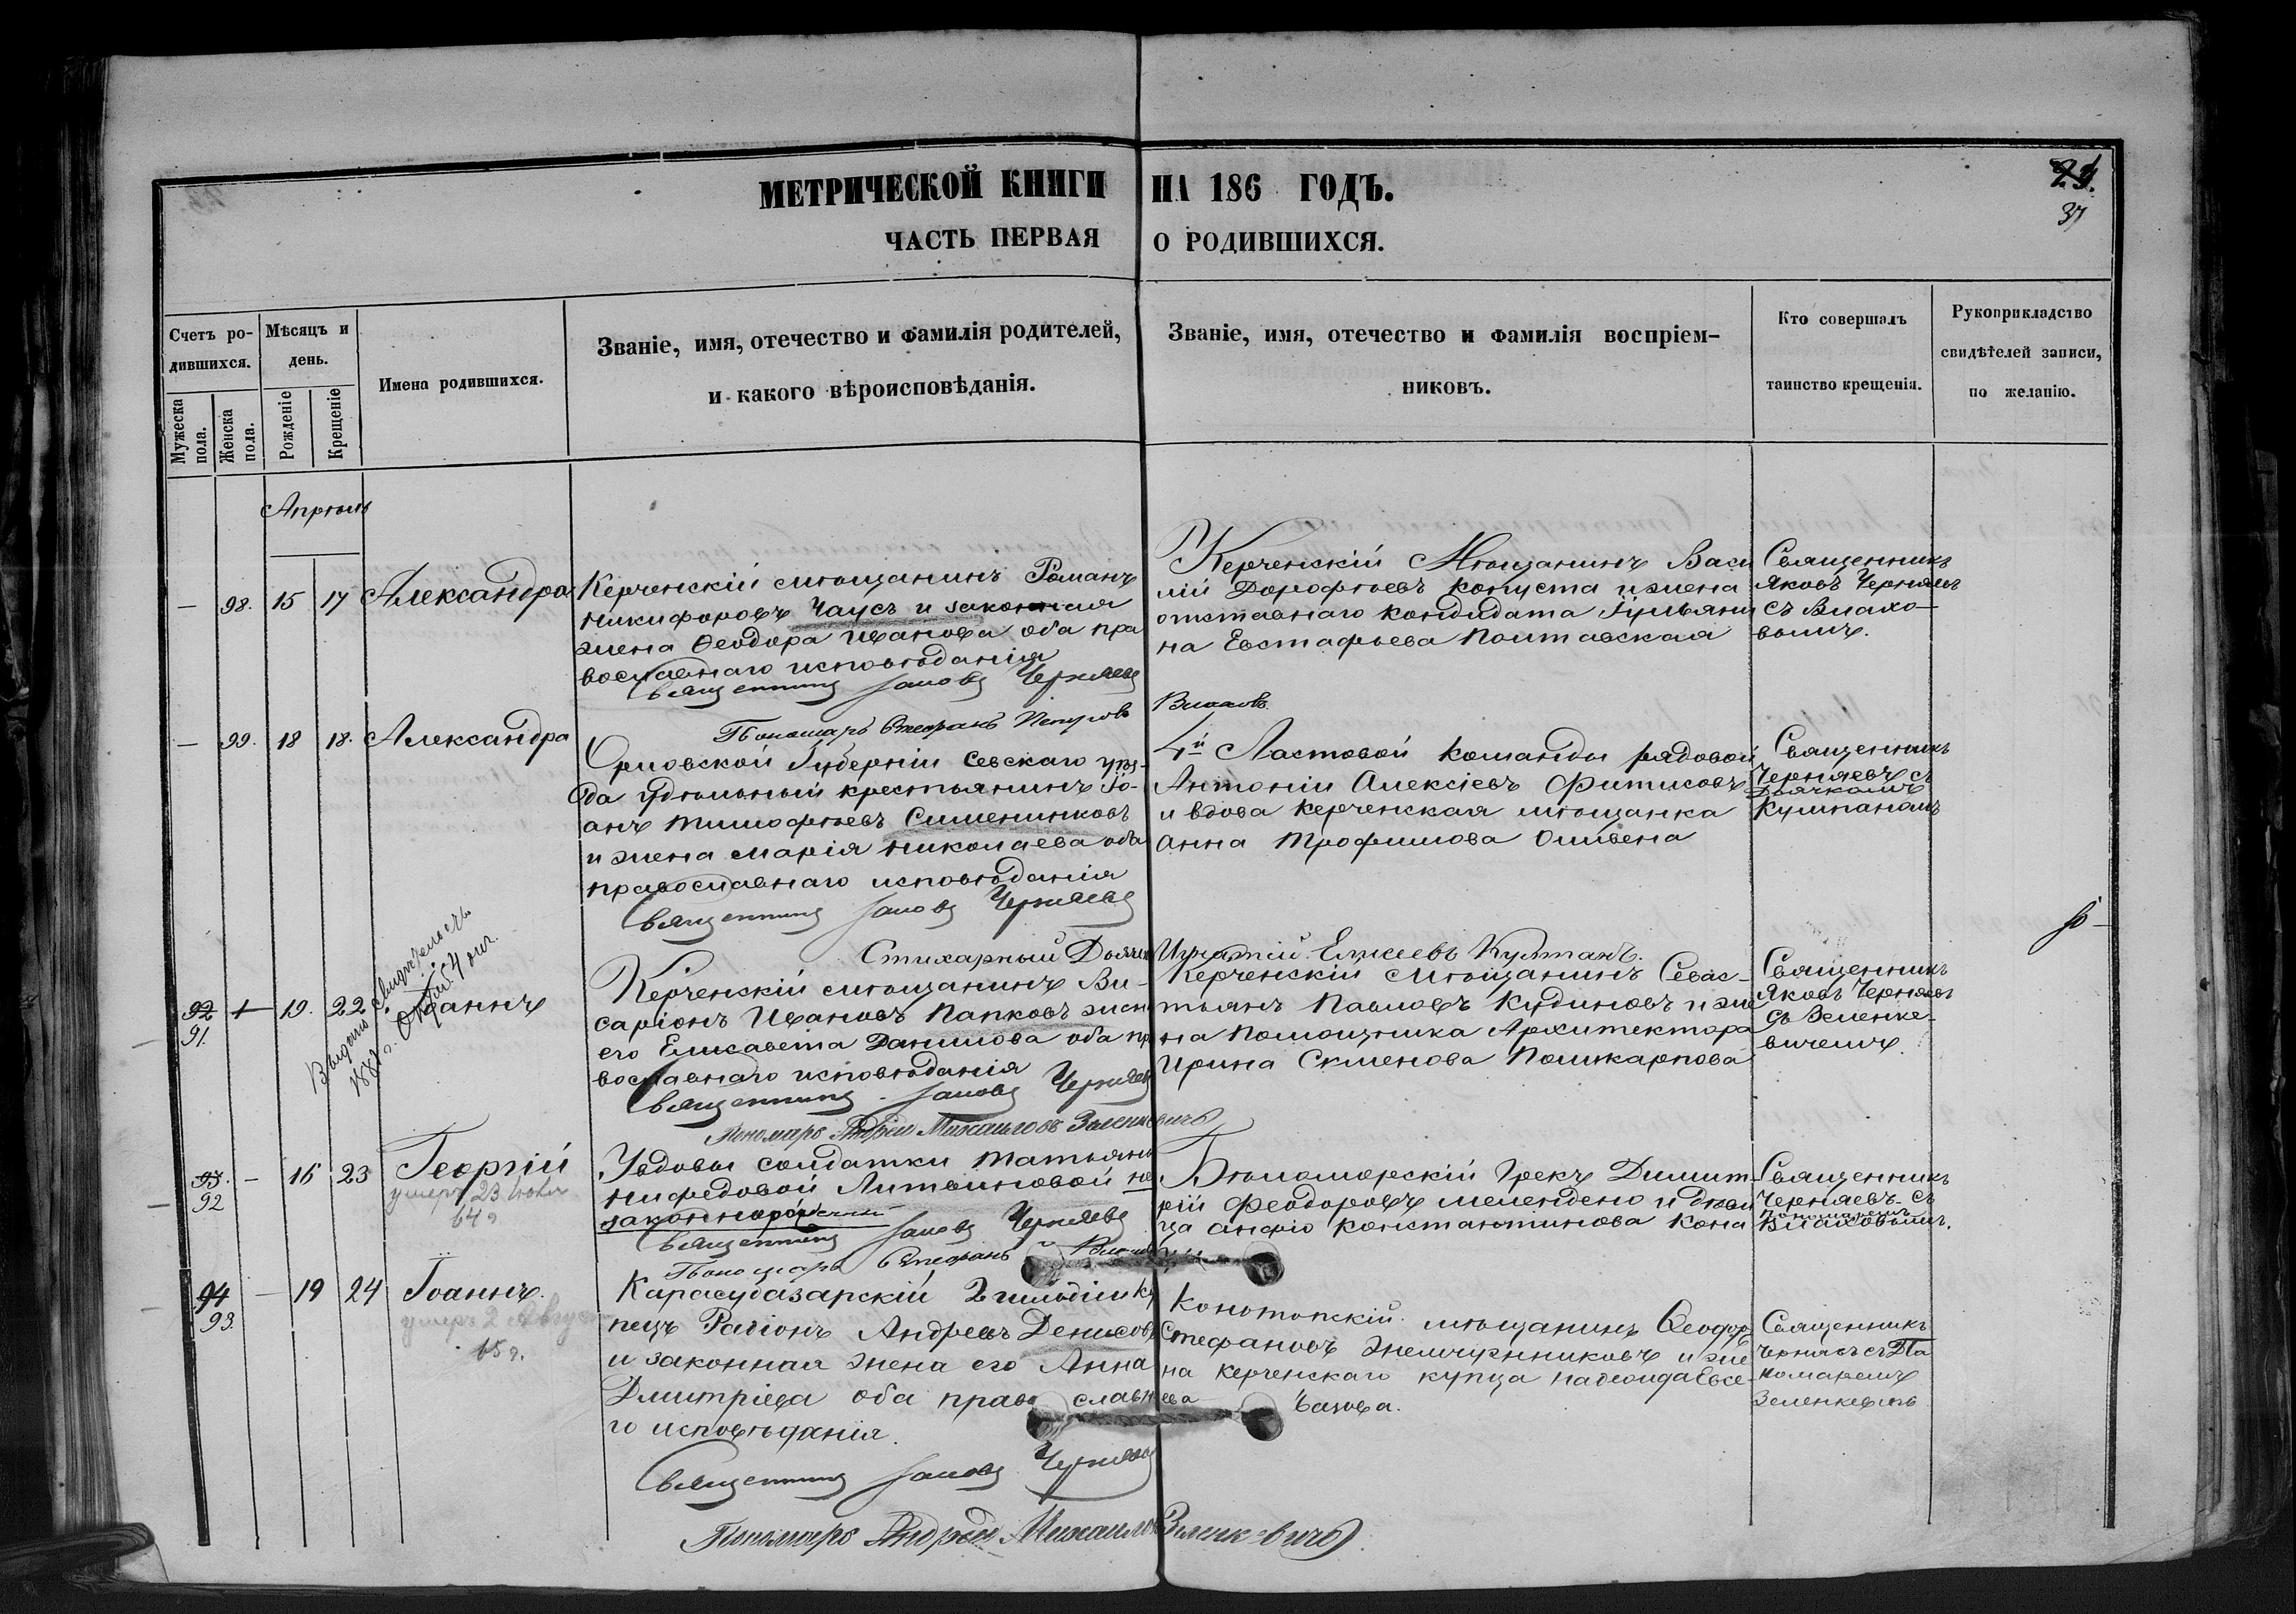 МЕТРИЧЕСКОЙ КНИГИ НА 186 ГОДЪ.
37
ЧАСТЬ ПЕРВАЯ О РОДИВШИХСЯ.
Счетъ ро-
дившихся.
Мужеска пола.
Женска пола.
Мѣсяцъ и
день.
Рожденіе
Крещеніе
Имена родившихся.
Званіе, имя, отечество и фамилія родителей,
и какого вѣроисповѣданія.
Званіе, имя, отечество и фамилія воспріем-
никовъ.
Кто совершалъ
таинство крещенія.
Рукоприкладство
свидѣтелей записи,
по желанію.
Апрѣль
— 98. 15 17 Александра
Керченскій мѣщанинъ Романъ
Никифоровъ Чаусъ и законная
жена Ѳеодора Иванова оба пра
вославнаго исповѣданія
Священникъ Іаковъ Черняевъ
Пономарь Стефанъ
Керченскій Мѣщанинъ Васи
лій Дорофѣевъ Капуста и жена
отставнаго кондидата Іульяни
на Евстафьева Полтавская
Влахов
Священникъ
Яковъ Черняевъ
съ Влахо-
вымъ.
— 99. 18 18. Александра
Орловской Губерніи Севскаго уѣз-
да удѣльный крестьянинъ Іо-
анъ Тимофѣевъ Симениковъ
и жена Марія Николаева оба
православнаго исповѣданія
Священникъ Іаковъ Черняевъ
Стихарный Дьячекъ Игнатій Елисеевъ Кулпанъ.
4й Ластовой команды рядовой
Антоній Алексіевъ Фитисовъ
и вдова керченская мѣщанка
Анна Трофимова
Священникъ
Черняевъ съ
Дьячкомъ
Кулпаномъ
92 — 19. 22. Іоаннъ
91.
Выдано свидѣтельст.
Керченскій мѣщанинъ Ви-
саріонъ Ивановъ Папковъ жена
его Елисавета Данилова оба пр
вославнаго исповѣданія
Священникъ Іаковъ Черняевъ
Пономарь Андрей Михаиловъ Зеленкевичъ
Керченскій Мѣщанинъ Севас-
тьянъ Павловъ Кудиновъ и же
на помощника Архитектора
Ирина Семенова Поликарпова
Священникъ
Яковъ Черняевъ
съ Зеленке-
вичемъ.
93. — 16 23 Георгій
92
умеръ 23 Іюля
64 г
У вдовы солдатки Татьяны
Нифедовой Литвиновой не
законнорожденный
Священникъ Іаковъ Черняевъ
Пономарь Стефанъ
Бѣломорскій Грекъ Димит
рій Феодоровъ и дѣви
ца Константинова
Священникъ
Черняевъ съ
Пономаремъ
Влаховымъ.
94 — 19 24 Іоаннъ.
93.
умеръ 2 Август
65 г.
Карасубазарскій 2 гильдіи ку
пецъ Родіонъ Андреевъ Денисовъ
и законная жена его Анна
Дмитріева оба право славна
го исповѣданія.
Священникъ Іаковъ Черняевъ
Пономарь Андрей Михаиловъ Зеленкевичъ
Конотопскій мѣщанинъ Ѳеодоръ
Стефановъ Жемчужниковъ и же
на керченскаго купца Надежда Евсе-
ева
Священникъ
Черняевъ съ По
номаремъ
Зеленкевичъ